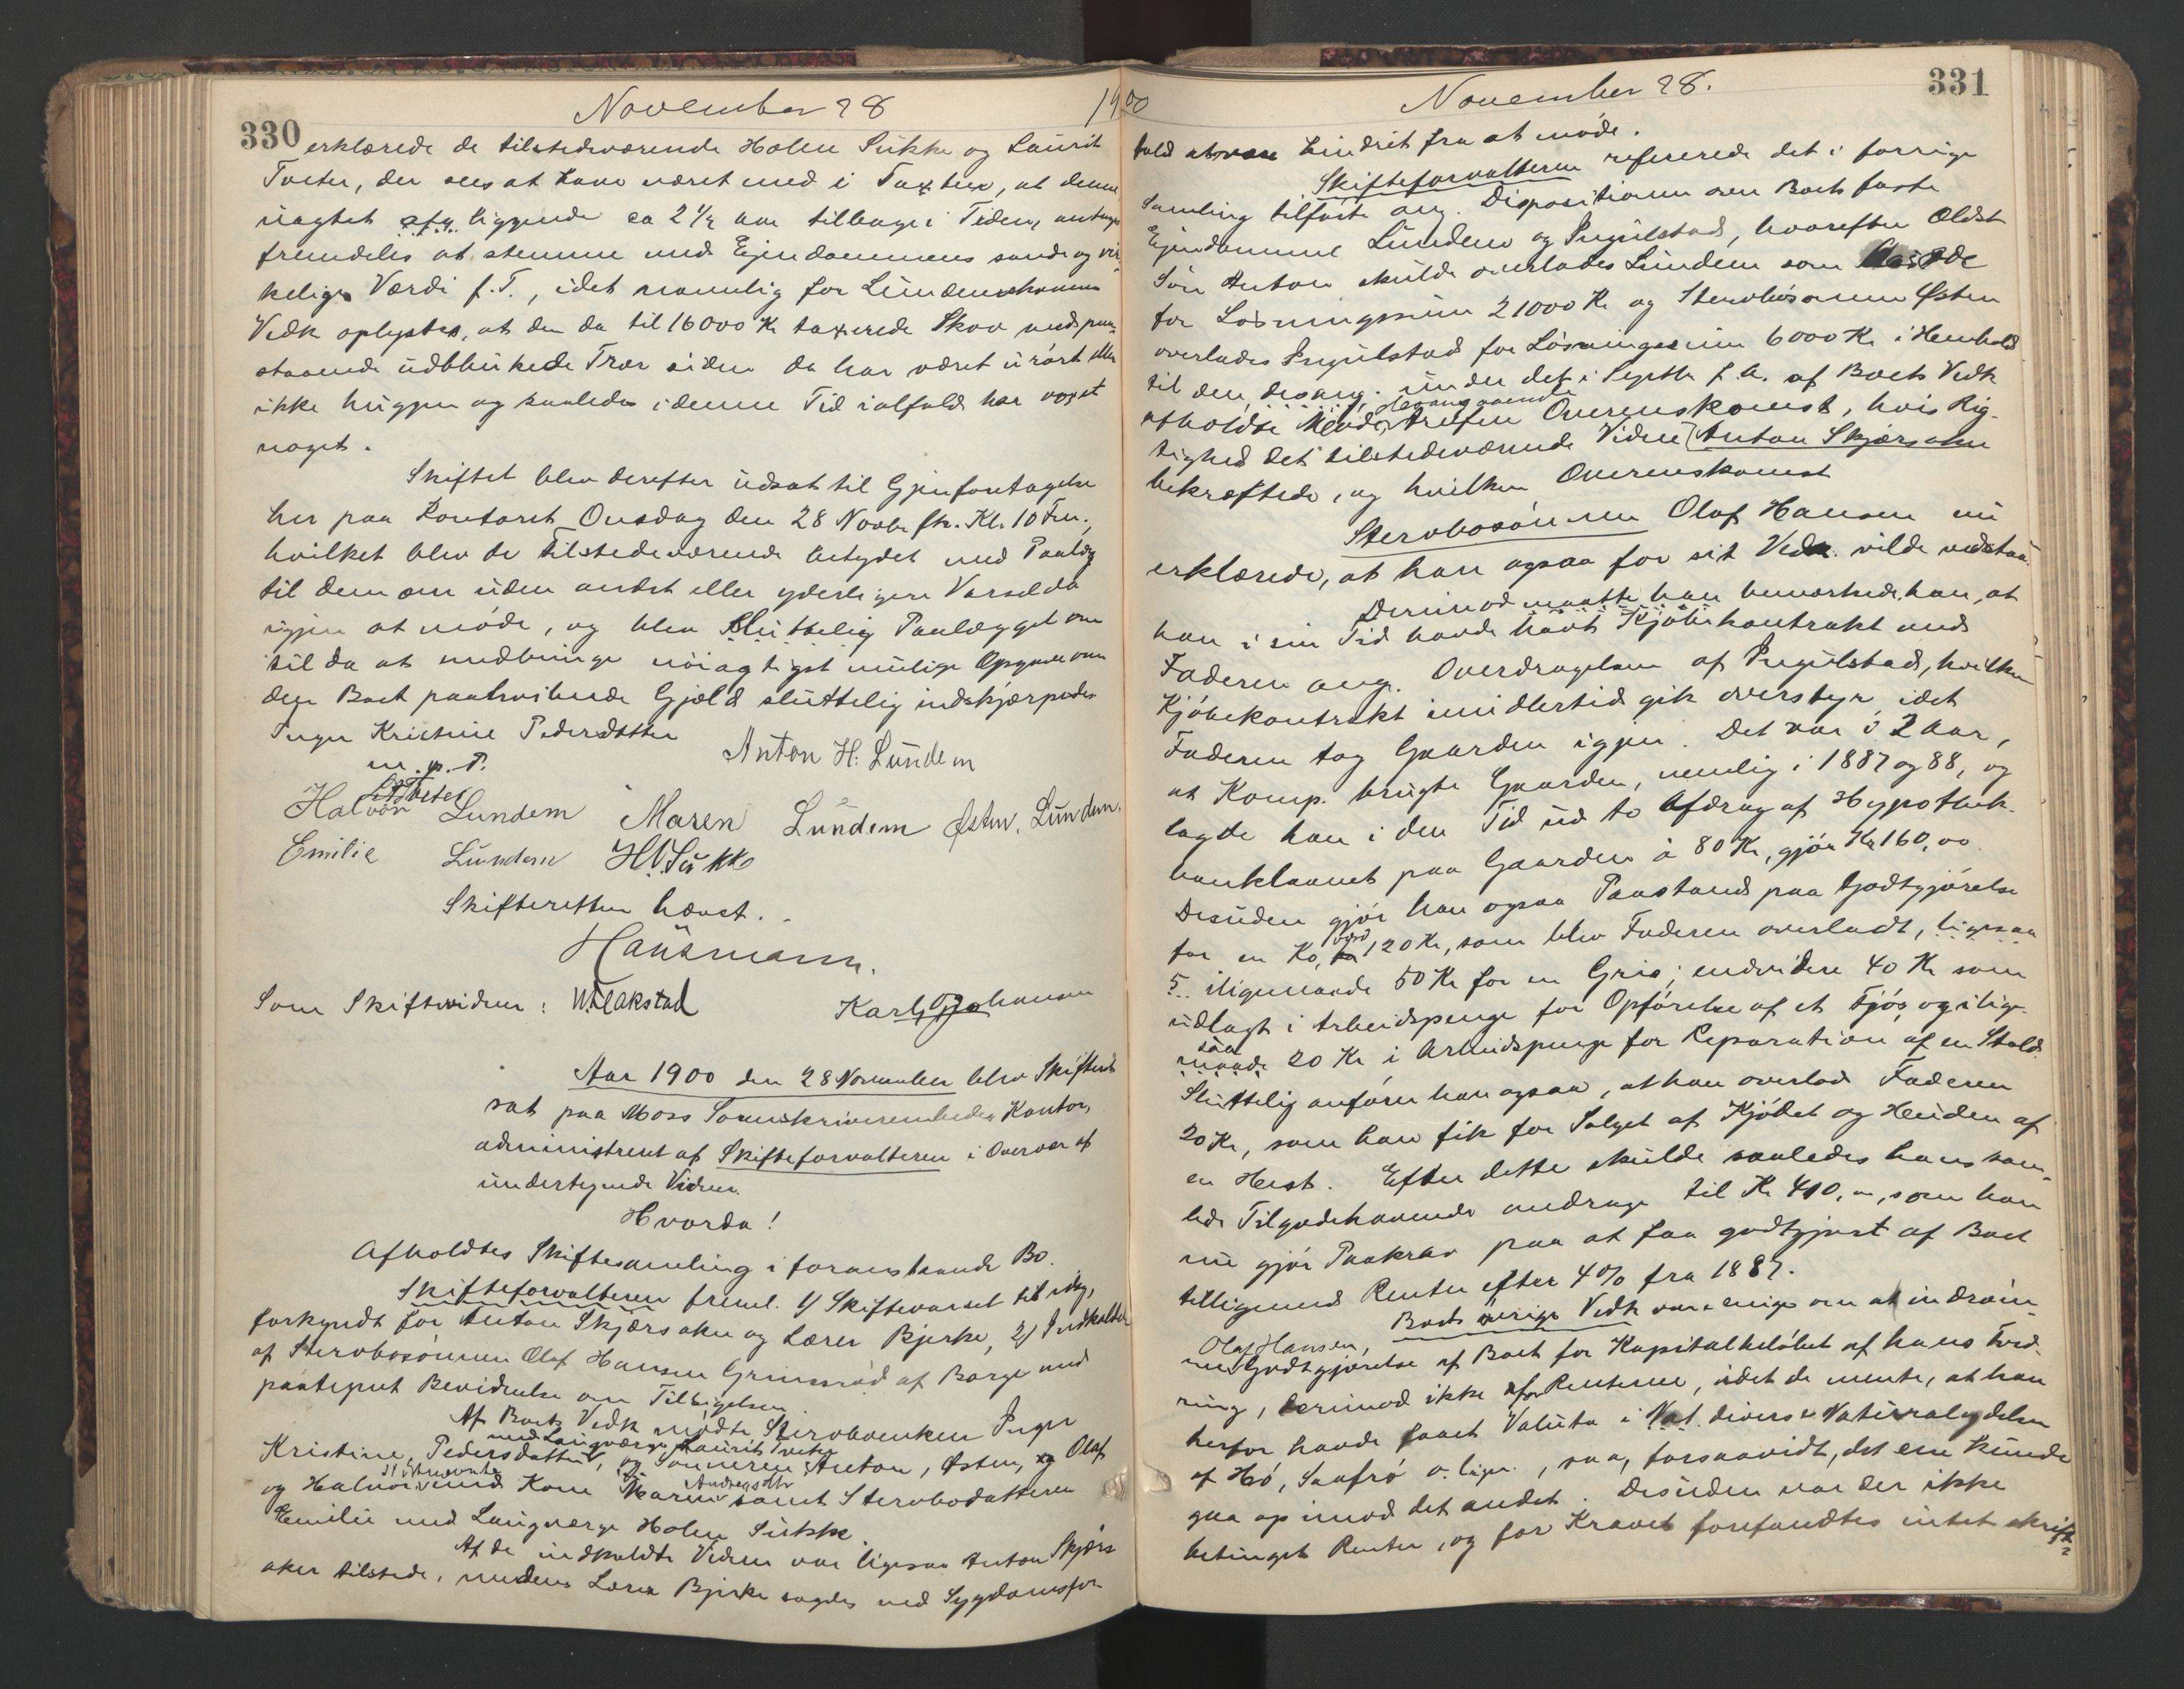 330
November 28
1900
erklærede de tilstedeværende Holm Sukke og Laurit
Tveter, der sees at have været med i Taxten, at denne
uagtet liggende ca 2 1/2 aar tilbage i Tiden, antages
fremdeles at stemme med Ejendommens sande og vir-
kelige Værdi f. T., idet navnlig for Lundems
Vedk oplystes, at den da til 16000 Kr taxerede Skov med paa-
staaende udblinkede Trær siden da har været urørt eller
ikke huggen og saaledes i denne Tid ialfald har voxet
noget.
Skiftet blev derefter udsat til Gjenforetagelse
her paa Kontoret Onsdag den 28 Novbr. Kl. 10 Fm.,
hvilket blev de Tilstedeværende betydet med Paalæg
til dem om uden andet eller yderligere Varsel da
igjen at møde, og blev sluttelig Paalægget om
til da at medbringe nøiagtigst mulige Opgave over
den Boet paahvilende Gjæld sluttelig indskjærpedes
Inger Kristine Pedersdatter
m. p. P.
Anton H. Lundem
L Tveter
Halvor Lundem Maren Lundem Østen. Lundem.
Emilie Lundem H. Sukke
Skifteretten hævet.
Hausmann.
Som Skiftevidner: Wleakstad Karl Johansen
Aar 1900 den 28 November blev Skifteret
sat paa Moss Sorenskriverembedes Kontor,
administreret af Skifteforvalteren i Overvær af
undertegnede Vidner.
Hvorda!
Afholdtes Skiftesamling i foranstaaende Bo.
Skifteforvalteren freml. 1/ Skiftevarsel til idag,
forkyndt for Anton Skjørsaker og Lærer Bjerke, 2) Indkaldelse
af Stervbosønnen Olaf Hansen Grimsrød af Borge med
paategnet Bevidnelse om Tilsigelsen.
Af Boets Vedk mødte Stervboenken Inger
med Laugværge Laurits Tveter
Kristine Pedersdatter, og Sønnerne Anton, Østen, og Olaf
Andreasdtr
og Halvor med Kone Maren samt Stervbodatteren
Emilie med Laugværge Holm Sukke.
Af de indkaldte Vidner var ligesaa Anton Skjørs-
aker tilstede, medens Lærer Bjerke sagdes ved Sygdomsfor-
November 28.
331
fald at være hindret fra at møde.
Skifteforvalteren refererede det i forrige
Samling tilførte ang. Dispositionen over Boets faste
Ejendomme Lundem og Ingulstad, hvorefter ældste
Søn Anton skulde overlades Lundem som
for Løsningssum 21000 Kr og Stervbosønnen Østen
overlades Ingulstad for Løsningssum 6000 Kr i Henhold
til den desang. under det i Septbr f. A. af Boets Vedk
desangaaende
afholdte Møde trufne Overenskomst, hvis Rig-
tighed det tilstedeværende Vidne Anton Skjørsaker
bekræftede, og hvilken Overenskomst
Stervbosønnen Olaf Hansen nu
erklærede, at han ogsaa for sit Vedk. vilde vedstaa.
Derimod maatte han bemærkede han, at
han i sin Tid havde havt Kjøbekontrakt med
Faderen ang. Overdragelsen af Ingulstad, hvilken
Kjøbekontrakt imidlertid gik overstyr, idet
Faderen tog Gaarden igjen. Det var i 2 Aar,
at Komp. brugte Gaarden, nemlig i 1887 og 88, og
lagde han i den Tid ud to Afdrag af Hypothek-
banklaanet paa Gaarden à 80 Kr, gjør Kr 160,00
Desuden gjør han ogsaa Paastand paa Godtgjørelse
værd
for en Ko, 120 Kr, som blev Faderen overladt, ligesaa
5. iligemaade 50 Kr for en Gris; endvidere 40 Kr som
udlagt i Arbeidspenge for Opførelse af et Fjøs og ilige-
saa
maade 20 Kr i Arbeidspenge for Reparation af en Stald.
Sluttelig anfører han ogsaa, at han overlod Faderen
20 Kr, som han fik for Salget af Kjødet og Huden af
en Hest. Efter dette skulde saaledes hans sam-
lede Tilgodehavende andrage til Kr 410,00, som han
nu gjør Paakrav paa at faa godtgjort af Boet
tilligemed Renter efter 4% fra 1887.
Boets øvrige Vedk var enige om at indrøm-
Olaf Hansen,
me Godtgjørelse af Boet for Kapitalbeløbet af hans Ford-
ring, derimod ikke af Renterne, idet de mente, at han
herfor havde faaet Valuta i diverse Naturalydelser
af Hø, Saafrø o. lign., saa, forsaavidt, det ene kunde
gaa op imod det andet. Desuden var der ikke
betinget Renter, og for Kravet forefandtes intet skrift-